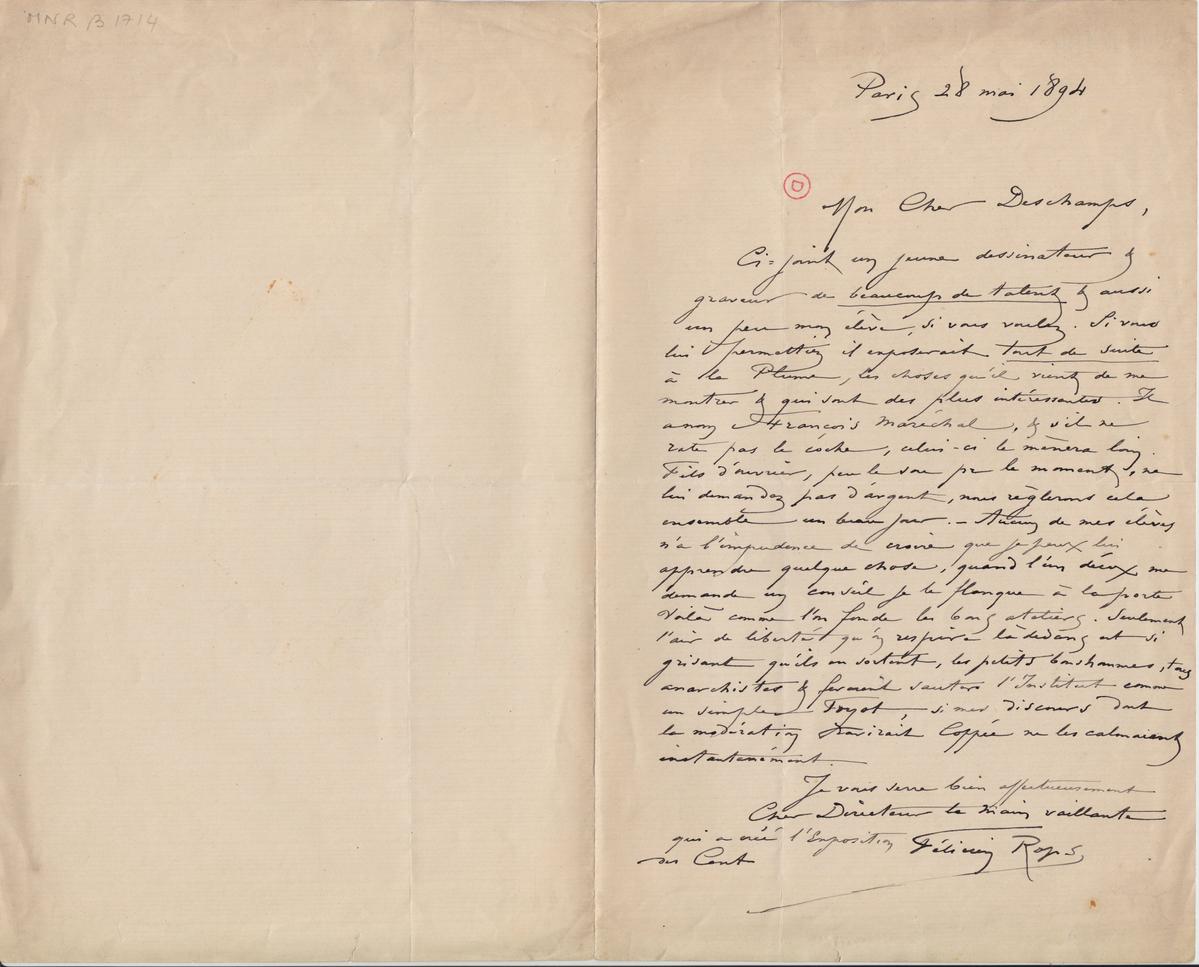 MNR β 1714
Paris 28 mai 1894
D
Mon Cher Deschamps,
Ci=joint un jeune dessinateur &
graveur de beaucoup de talent & aussi
un peu mon élève, si vous voulez. Si vous
lui permettiez il exposerait tout de suite
à la Plume, les choses qu'il vient de me
montrer & qui sont des plus intéressantes. Il
a nom François Maréchal, & s'il ne
rate pas le coche, celui-ci le mènera loin.
Fils d'ouvrier, peu le sou pr le moment, ne
lui demandez pas d'argent, nous règlerons cela
ensemble un beau jour. – Aucun de mes élèves
n'a l'impudence de croire que je peux lui
apprendre quelque chose, quand l'un d'eux me
demande un conseil je le flanque à la porte
Voilà comme l'on fonde les bons ateliers. Seulement
l'air de liberté qu'on respire là dedans est si
grisant qu'ils en sortent, les petits bonshommes, tous
anarchistes & feraient sauter l'Institut comme
un simple Foyot, si mes discours dont
la modération ravirait Coppée ne les calmaient
instantanément.
Je vous serre bien affectueusement
Cher Directeur la main vaillante
qui a créé l'Exposition Félicien Rops
des Cent